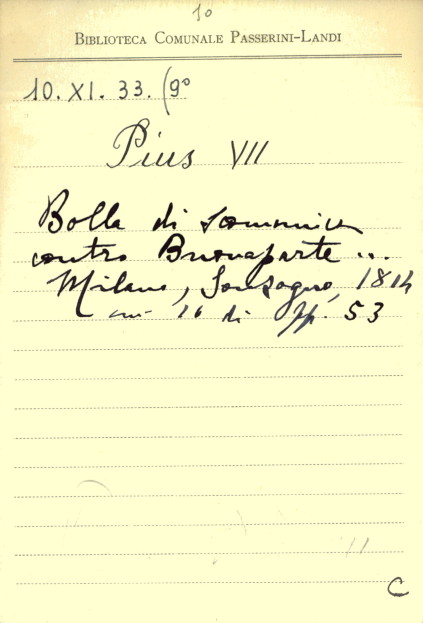 10
BIBLIOTECA COMUNALE PASSERINI-LANDI
10. XI. 33. (9°
Pius VII
Bolla di scomunica
contro Buonaparte ...
Milano, Sonzogno, 1814
in 16 di pp. 53
C